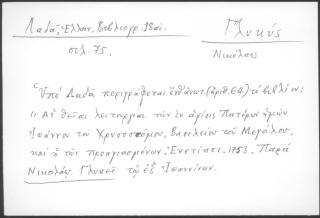 Λαδᾶ, Ἑλλην. Βιβλιογρ. 18 αἰ.
σελ. 75.
Γλυκύς
Νικόλαος
Ὑπὸ Λαδᾶ περιγράφεται (ἀριθ. 64) τὸ βιβλίον:
"Αἱ θεῖαι λειτουργίαι τῶν ἐν ἁγίοις Πατέρων ἡμῶν
Ἰωάννου τοῦ Χρυσοστόμου, Βασιλείου τοῦ Μεγάλου,
καὶ ἡ τῶν προηγιασμένων. Ἐνετίησι. 1753. Παρὰ
Νικολάῳ Γλυκεῖ τῷ ἐξ Ἰωαννίνων.